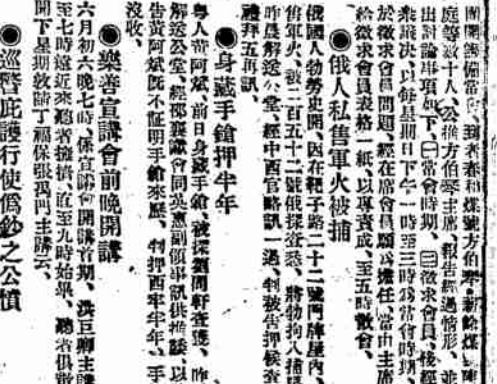 庭等數十人、公推方伯琴主席、報告經過情形、並
出討論事項如下、㊀常會時期、㊁徵求會員、後經
眾議决、以每星期日下午一時至三時爲常會時期、
於徵求會員問題、經在席會員願爲擔任、當由主席
給徵求會員表格一紙、以專責成、至五時散會、
●俄人私售軍火被捕
俄國人勃勞史開、因在靶子路二十二號門牌屋內、
售軍火、被二百五十二號俄探查悉、將勃拘入捕房
昨晨解送公堂、經中西官略訊一過、判被告押候查
禮拜五再訊、
●身藏手鎗押半年
粤人黃阿斌、前日身藏手鎗、被探劉開軒查獲、昨
解送公堂、經鄒襄讞會同英惠副領事訊供推談、以
告黃阿斌旣不証明手鎗來歷、判押西牢半年、手
沒收、
●樂善宣講會前晚開講
六月初六晚七時、保宣講會開講首期、洪巨卿主講
至七時遠近來聽者擁擠、直至九時始畢、聽者俱散
開下星期敦請丁福保張禹門主講云、
●巡警庇護行使僞鈔之公憤